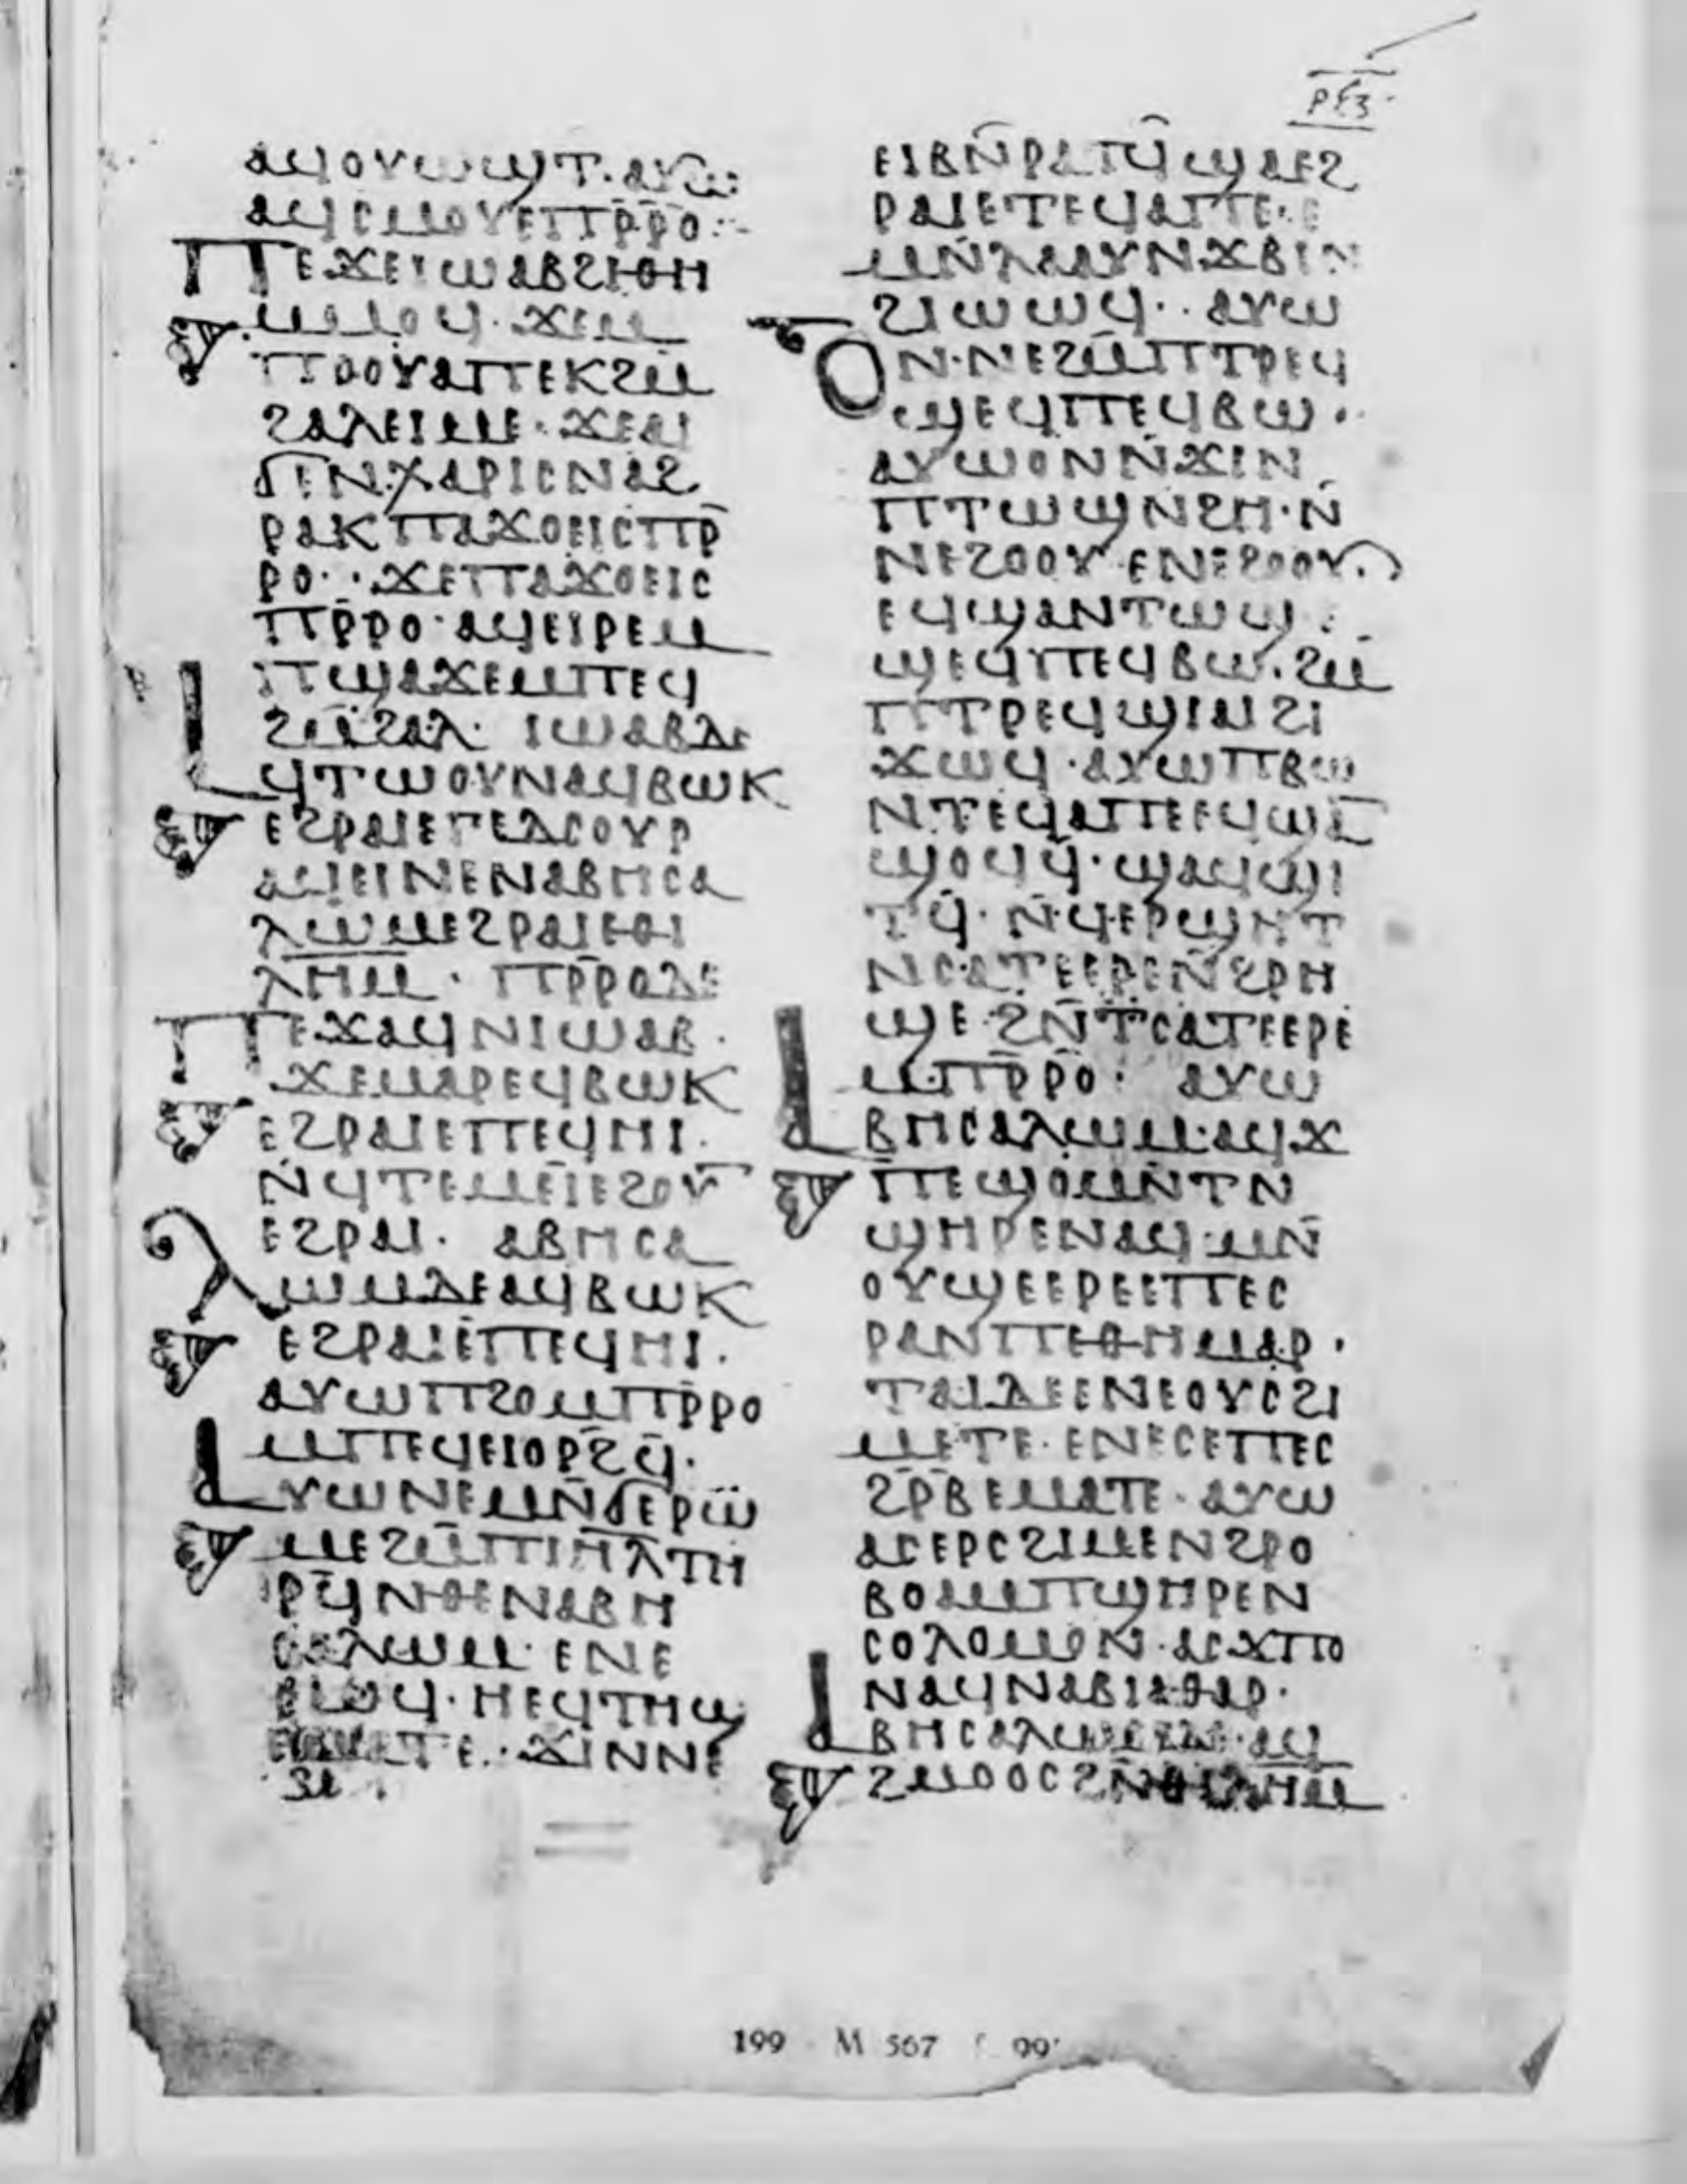 ⲣⲝⲍ
ⲁϥⲟⲩⲱϣⲧ· ⲁⲩⲱ
ⲁϥⲥⲙⲟⲩⲉⲡⲣ̄ⲣⲟ·
ⲡⲉϫⲉⲓⲱⲁⲃϩⲓⲑⲏ
ⲙⲙⲟϥ· ϫⲉⲙ
ⲡⲟⲟⲩⲁⲡⲉⲕϩⲙ̄
ϩⲁⲗⲉⲓⲙⲉ· ϫⲉⲁⲓ
ϭⲓⲛⲭⲁⲣⲓⲥⲛⲁϩ
ⲣⲁⲕⲡⲁϫⲟⲉⲓⲥⲡⲣ̄
ⲣⲟ· ϫⲉⲡⲁϫⲟⲉⲓⲥ
ⲡⲣ̄ⲣⲟ· ⲁϥⲉⲓⲣⲉⲙ
ⲡϣⲁϫⲉⲙⲡⲉϥ
ϩⲙ̄ϩⲁⲗ· ⲓⲱⲁⲃⲇⲉ
ⲁϥⲧⲱⲟⲩⲛⲁϥⲃⲱⲕ
ⲉϩⲣⲁⲓⲉⲅⲉⲇⲥⲟⲩⲣ
ⲁϥⲉⲓⲛⲉⲛⲁⲃⲏⲥⲁ
ⲗⲱⲙⲉϩⲣⲁⲓⲉⲑⲓ
ⲗⲏⲙ· ⲡⲣ̄ⲣⲟⲇⲉ
ⲡⲉϫⲁϥⲛⲓⲱⲁⲃ·
ϫⲉⲙⲁⲣⲉϥⲃⲱⲕ
ⲉϩⲣⲁⲓⲉⲡⲉϥⲏⲓ·
ⲛ̄ϥⲧⲉⲙⲉⲓⲉϩⲟⲩⲛ
ⲉϩⲣⲁⲓ· ⲁⲃⲏⲥⲁ
ⲗⲱⲙⲇⲉⲁϥⲃⲱⲕ
ⲉϩⲣⲁⲓⲉⲡⲉϥⲏⲓ·
ⲁⲩⲱⲡϩⲟⲙⲡⲣ̄ⲣⲟ
ⲙⲡⲉϥⲉⲓⲟⲣϩϥ̄·
ⲁⲩⲱⲛⲉⲙⲛ̄ϭⲉⲣⲱ
ⲙⲉϩⲙ̄ⲡⲓⲏ̄ⲗⲧⲏ
ⲣϥ̄ⲛⲑⲉⲛⲁⲃⲏ
ⲥⲁⲗⲱⲙ· ⲉⲛⲉ
ⲥⲱϥ· ⲛⲉϥⲧⲏϣ
ⲉⲙⲁⲧⲉ· ϫⲓⲛⲛⲉ
ⲉⲓⲃⲛ̄ⲣⲁⲧϥ̄ϣⲁⲉϩ
ⲣⲁⲓⲉⲧⲉϥⲁⲡⲉ· ⲉ
ⲙⲛ̄ⲗⲁⲁⲩⲛϫⲃⲓⲛ
ϩⲓⲱⲱϥ·· ⲁⲩⲱ
ⲟⲛ·ⲛⲉϩⲙ̄ⲡⲧⲣⲉϥ
ϣⲉϥⲡⲉϥⲃⲱ·
ⲁⲩⲱⲟⲛⲛ̄ϫⲓⲛ
ⲡⲧⲱϣⲛϩⲏ·ⲛ̄
ⲛⲉϩⲟⲟⲩ·ⲉⲛⲉϩⲟⲟⲩ·
ⲉϥϣⲁⲛⲧⲱϣ·
ϣⲉϥⲡⲉϥⲃⲱ·ϩⲙ̄
ⲡⲧⲣⲉϥϣⲓⲁⲓϩⲓ
ϫⲱϥ·ⲁⲩⲱⲡⲃⲱ
ⲛⲧⲉϥⲁⲡⲉⲉϥϣⲁⲛ
ϣⲟϥϥ̄· ϣⲁϥϣⲓ
ⲧϥ̄· ⲛ̄ϥⲉⲣϣⲏⲧ
ⲛⲥⲁⲧⲉⲉⲣⲉⲛ̄ϩⲣⲏ
ϣⲉ· ϩⲛ̄ⲧⲥⲁⲧⲉⲉⲣⲉ
ⲙⲡⲣ̄ⲣⲟ· ⲁⲩⲱ
ⲁⲃⲏⲥⲁⲗⲱⲙ·ⲁϥϫ
ⲡⲉϣⲟⲙⲛ̄ⲧⲛ
ϣⲏⲣⲉⲛⲁϥ·ⲙⲛ̄
ⲟⲩϣⲉⲉⲣⲉⲉⲡⲉⲥ
ⲣⲁⲛⲡⲉⲑⲏⲙⲁⲣ·
ⲧⲁⲓⲇⲉⲉⲛⲉⲟⲩⲥϩⲓ
ⲙⲉⲧⲉ· ⲉⲛⲉⲥⲉⲡⲉⲥ
ϩⲣⲃⲉⲙⲁⲧⲉ· ⲁⲩⲱ
ⲁⲥⲉⲣⲥϩⲓⲙⲉⲛϩⲣⲟ
ⲃⲟⲁⲙⲡϣⲏⲣⲉⲛ
ⲥⲟⲗⲟⲙⲱⲛ· ⲁⲥϫⲡⲟ
ⲛⲁϥⲛⲁⲃⲓⲁⲑⲁⲣ·
ⲁⲃⲏⲥⲁⲗⲱⲙⲇⲉ·ⲁϥ
ϩⲙⲟⲟⲥϩⲛ̄ⲑⲓⲗⲏⲙ
199 M 567 f. 99ʳ